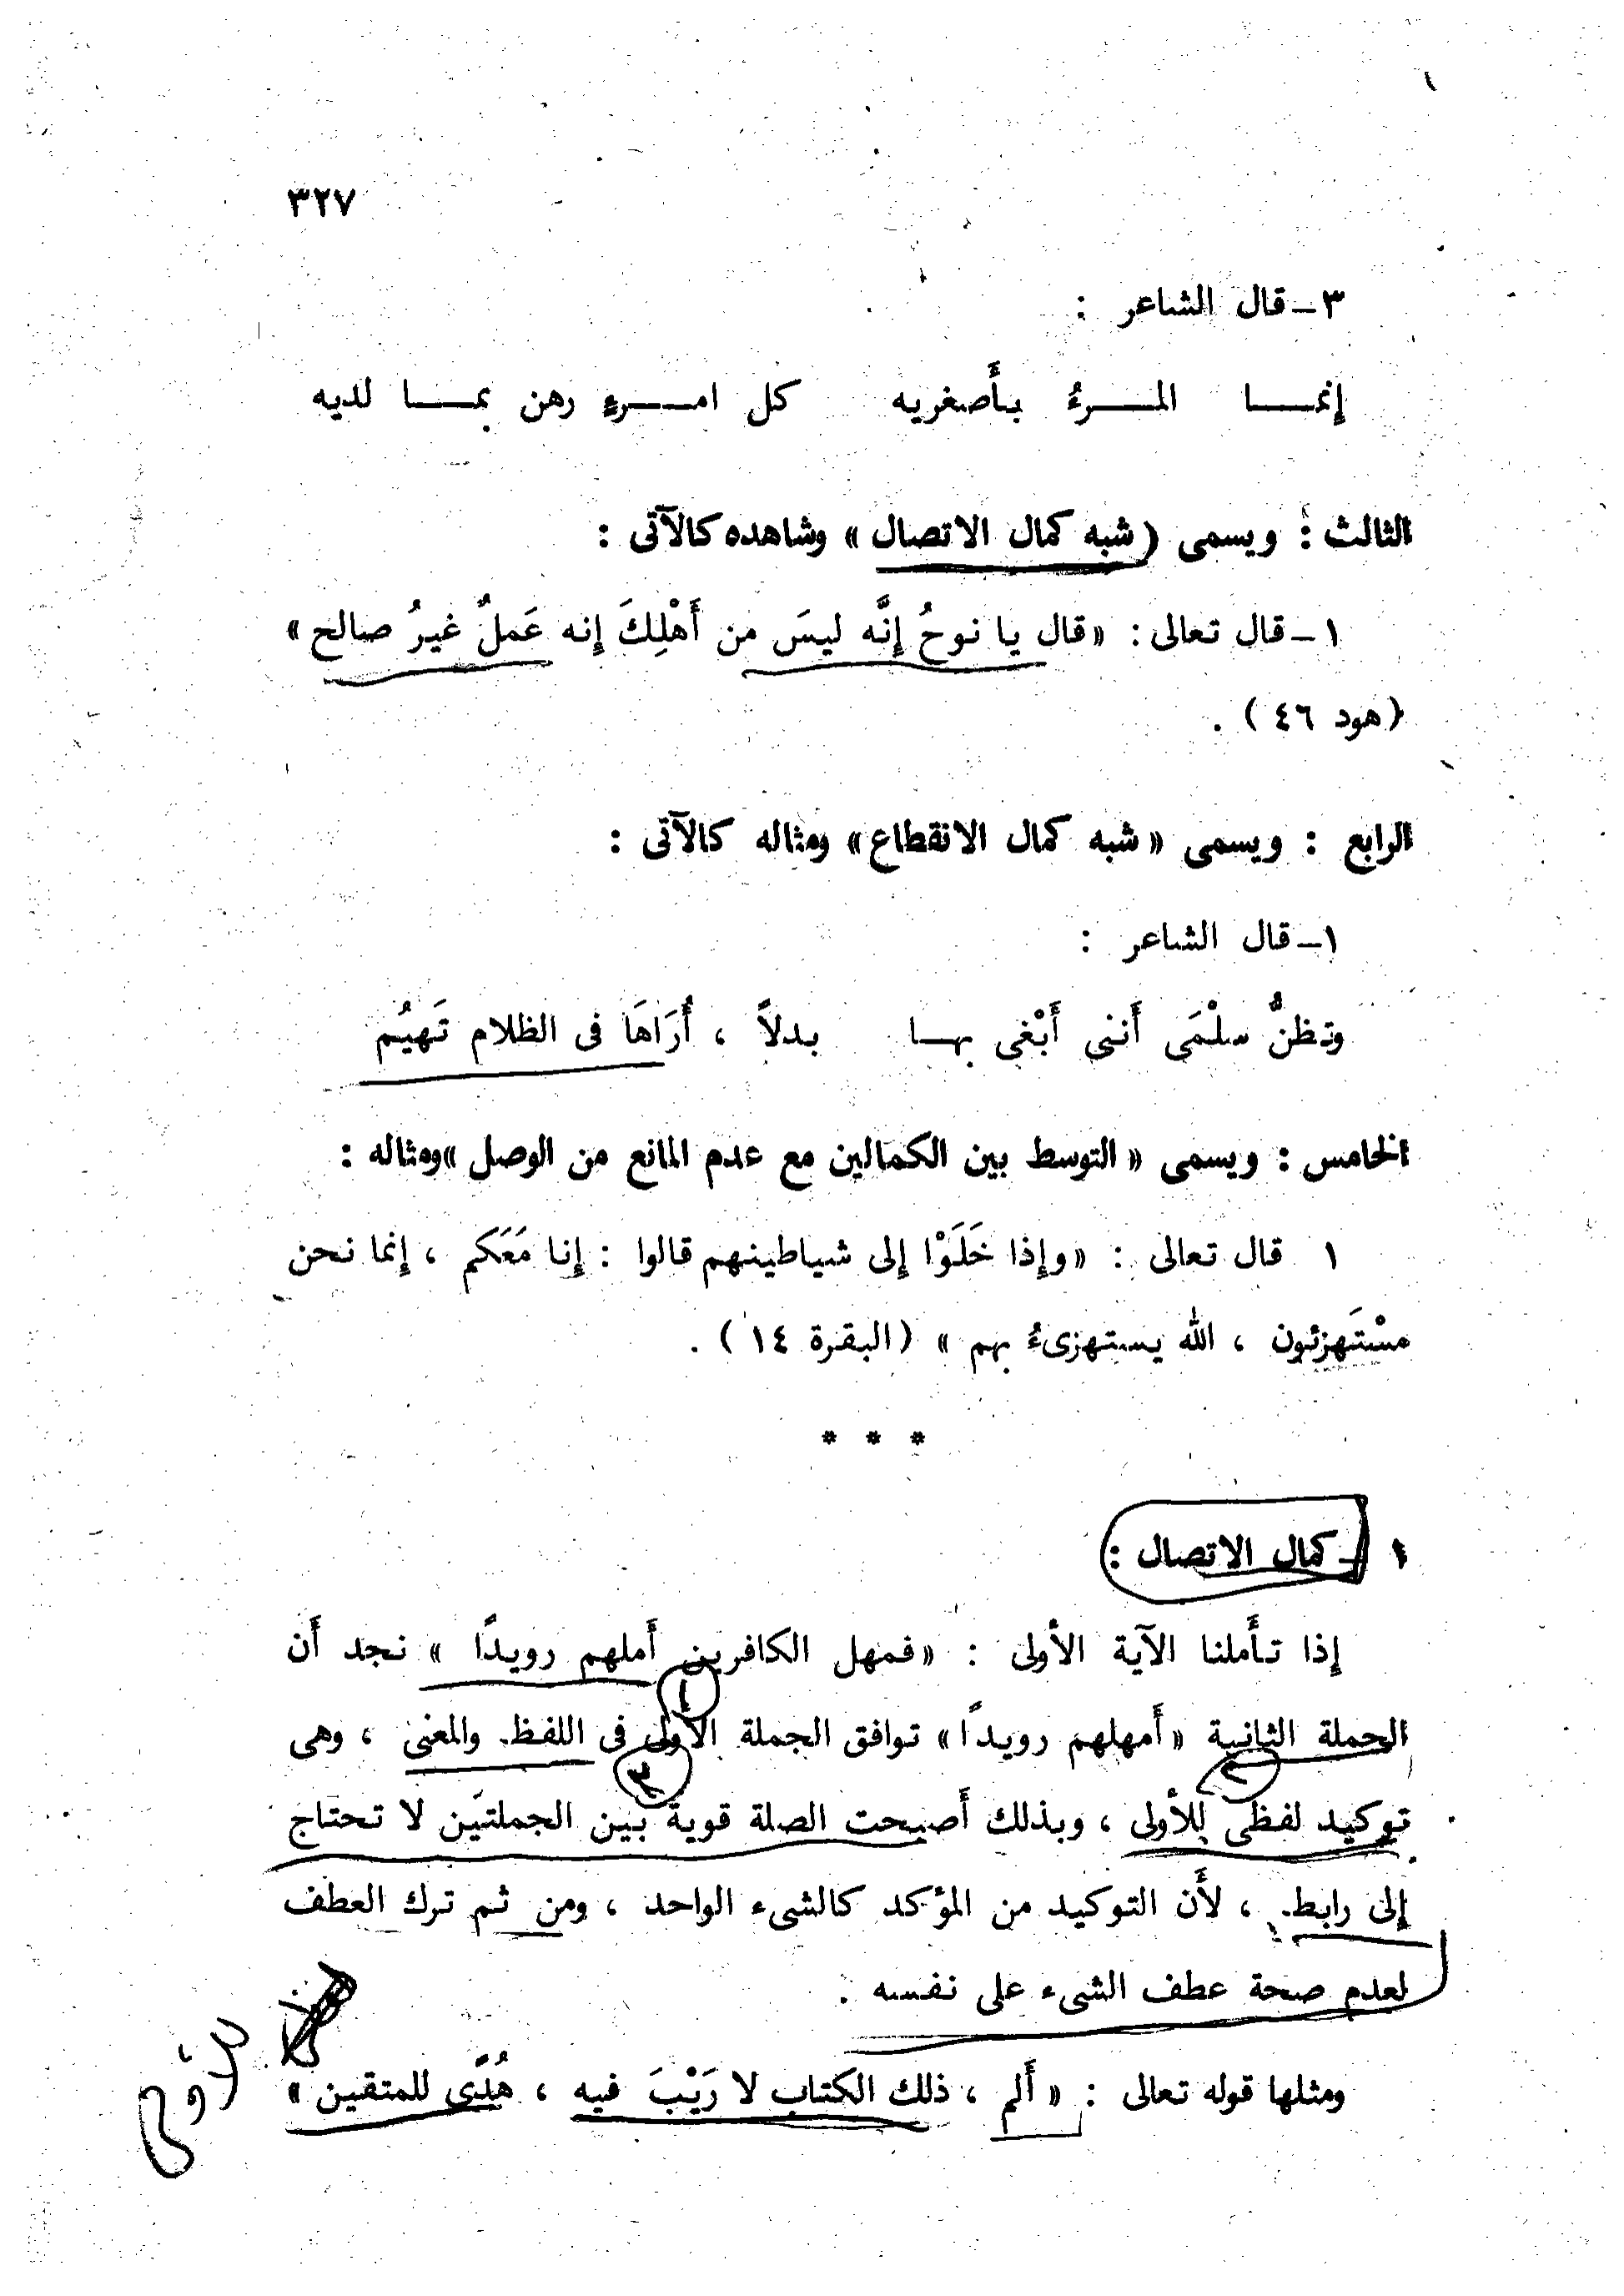 ٣٢٧
٣ – قال الشاعر :
إنمــا المــرءُ بأَصغريه كل امــرءٍ رهن بمــا لديه
الثالث : ويسمى (شبه كمال الاتصال» وشاهده كالآتى :
١ – قال تعالى : «قال يا نوحُ إنَّه ليسَ من أَهْلِكَ إنه عَملٌ غيرُ صالح»
(هود ٤٦) .
الرابع : ويسمى «شبه كمال الانقطاع» ومثاله كالآتى :
١ – قال الشاعر :
وتظنُّ سلْمَى أَننى أَبْغى بهــا بدلاً ، أُرَاهَا فى الظلام تَهيُم
الخامس : ويسمى «التوسط بين الكمالين مع عدم المانع من الوصل» ومثاله :
١ قال تعالى : «وإذا خَلَوْا إلى شياطينهم قالوا : إنا مَعَكم ، إنما نحن
مسْتَهزئون ، الله يستهزىءُ بهم» (البقرة ١٤) .
* * *
١ – كمال الاتصال :
إذا تأَملنا الآية الأولى : «فمهل الكافرين أَملهم رويدًا» نجد أَن
١
الجملة الثانية «أَمهلهم رويدًا» توافق الجملة الأولى فى اللفظ والمعنى ، وهى
٢ ٣
توكيد لفظى للأولى ، وبذلك أَصبحت الصلة قوية بين الجملتين لا تحتاج
إلى رابط ، لأَن التوكيد من المؤكد كالشىء الواحد ، ومن ثم ترك العطف
لعدم صحة عطف الشىء على نفسه .
ومثلها قوله تعالى : «أَلم ، ذلك الكتاب لا رَيْبَ فيه ، هُدًى للمتقين»